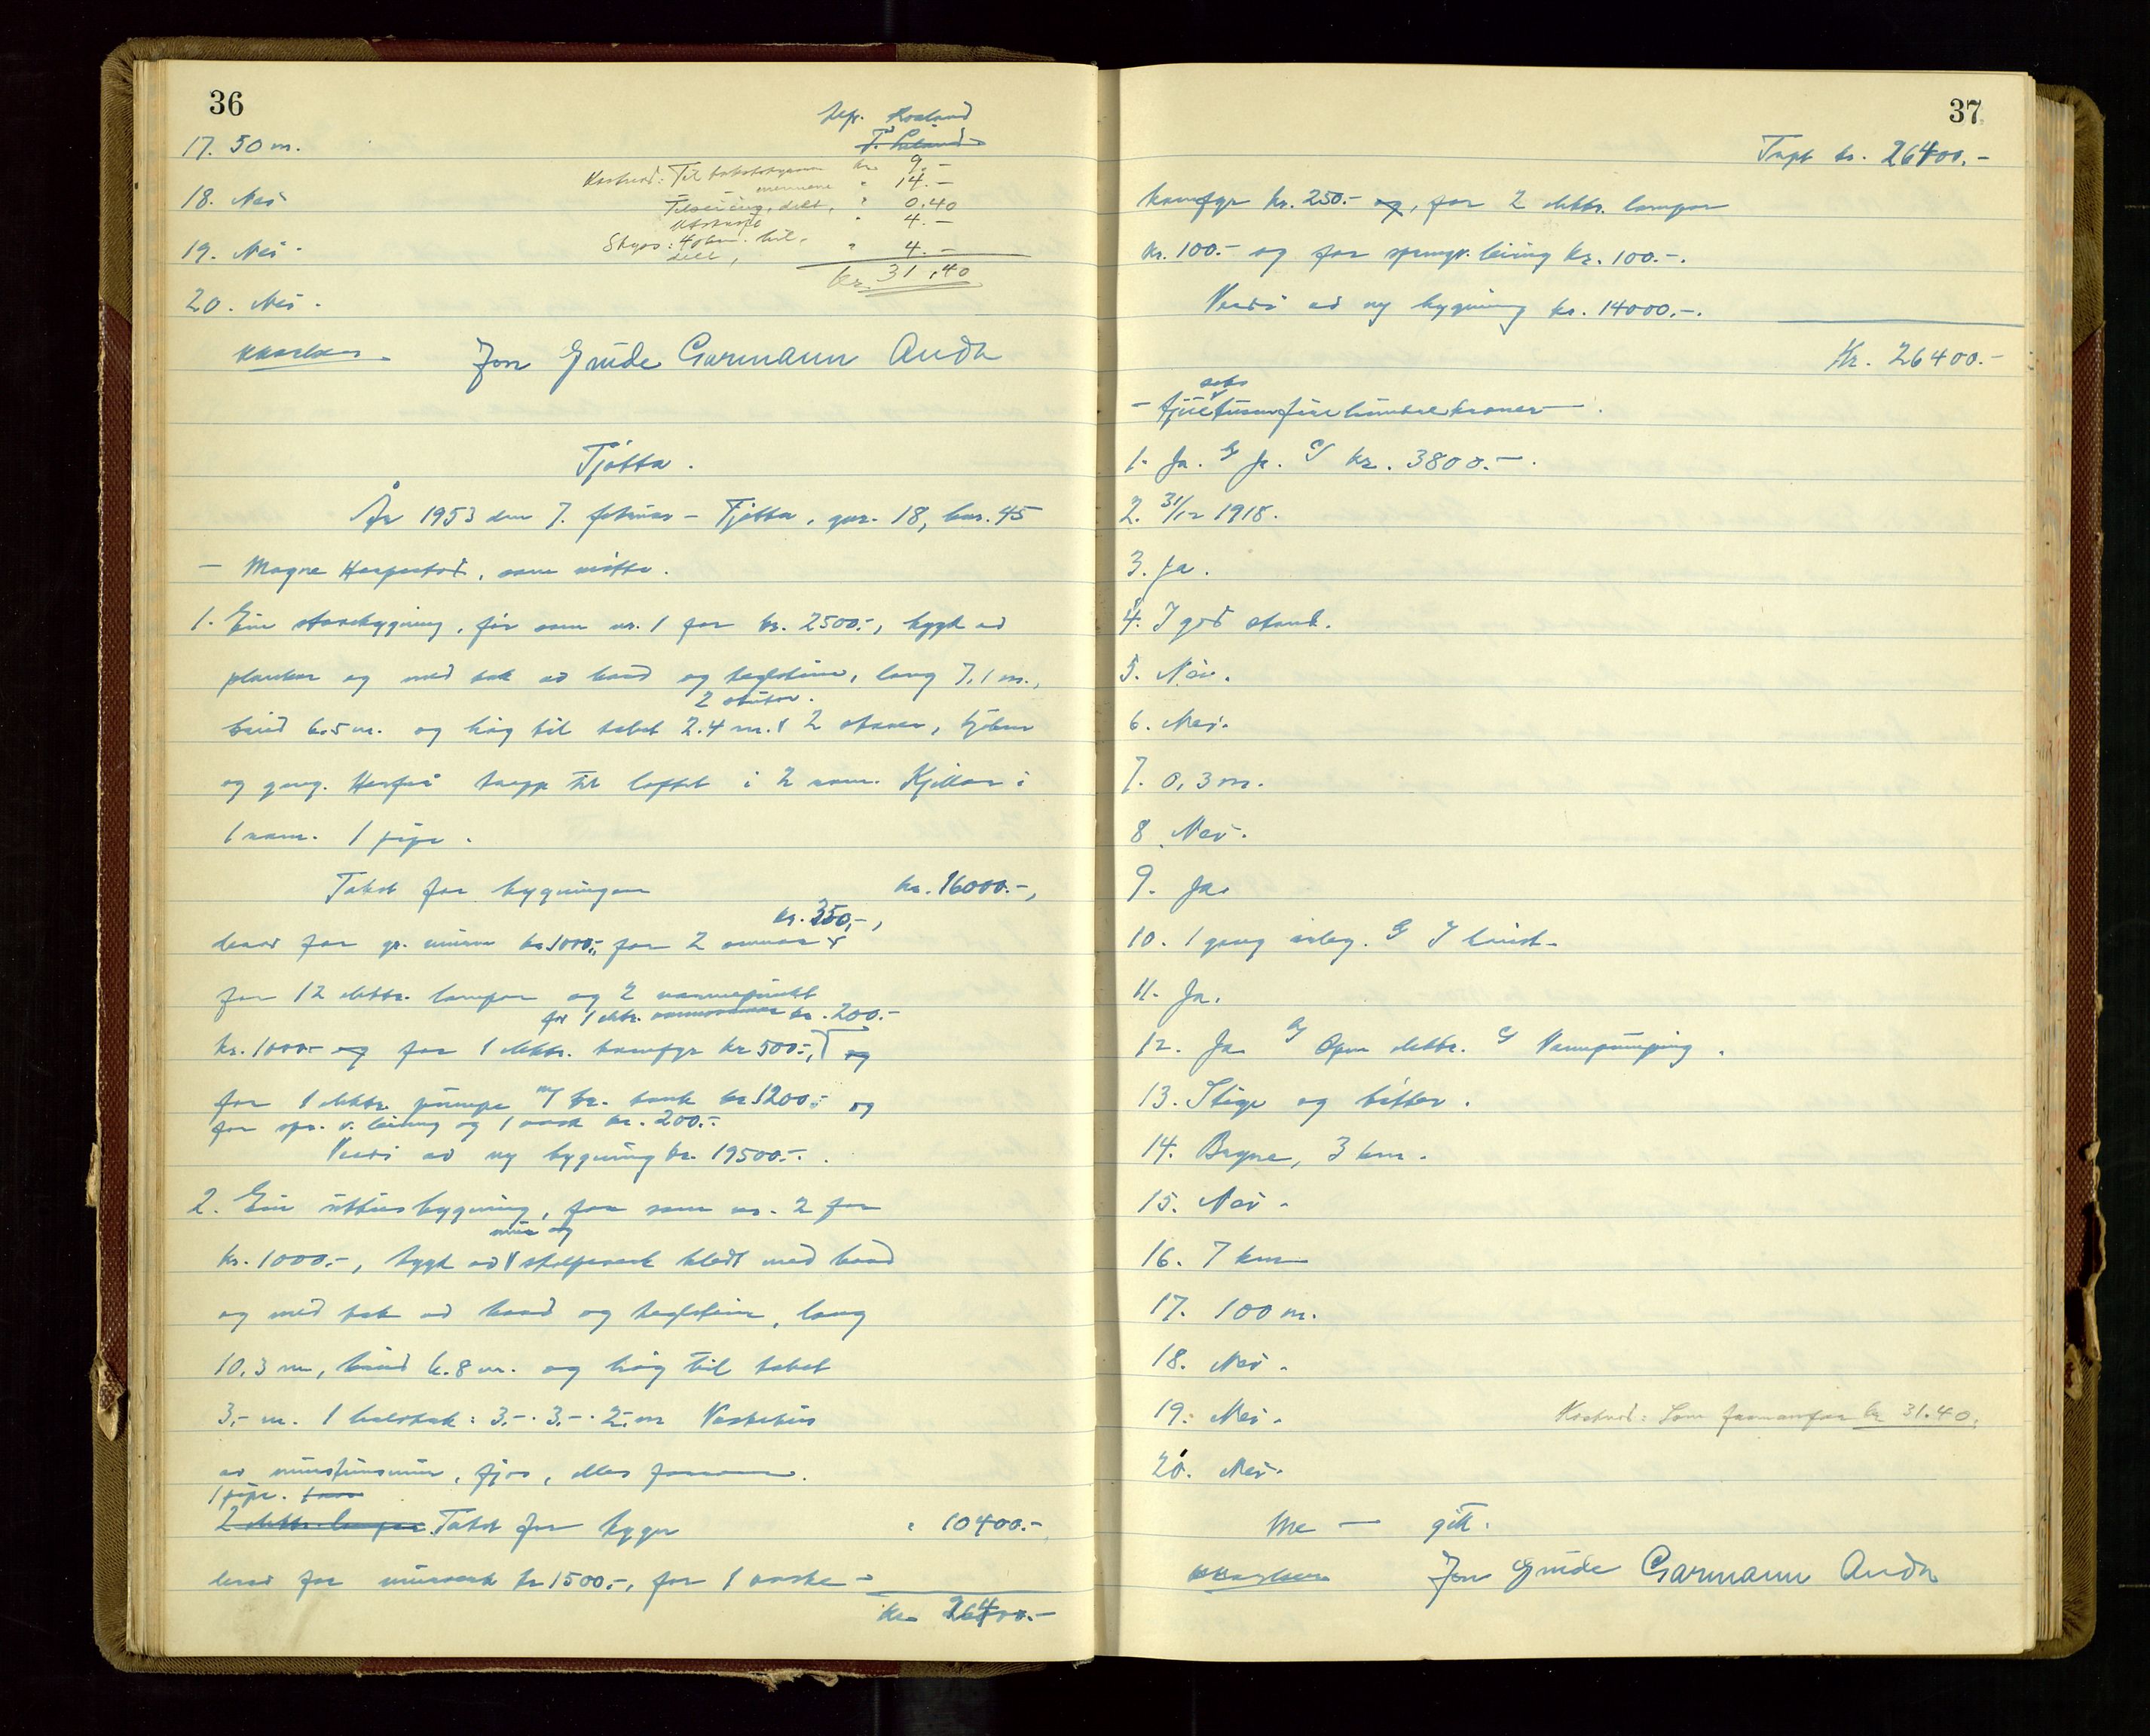 36
Repr. Roaland
17. 50 m.
Kostnad: Til takstskjønn kr. 9.-
" mennene " 14.-
18. Nei
Tilseiing, delt, " 0,40
Utskrift " 4.-
19. Nei.
Skyss: 4 okm. bil, delt, " 4.-
kr. 31,40
20. Nei.
Jon Grude Garmann Anda
Tjøtta.
År 1953 den 7. februar – Tjøtta, gnr. 18, bnr. 45
– Magne Herpestad, som møtte.
1. Ein stovebygning, før som nr. 1 for kr. 2500.-, bygt av
plankar og med tak av bord og teglstein, lang 7,1 m.,
2 stutar.
breid 6.5 m. og høg til taket 2.4 m. 2 stover, kjøken
og gang. Herfrå trapp til loftet i 2 rom. Kjellar i
1 rom. 1 pipe.
Takst for bygningen kr. 16000.-,
kr. 350,-,
herav for gr. muren kr. 1000,- for 2 omnar
for 12 elektr. lamper og 2 varmepunkt
for 1 elktr. kr. 200.-
kr. 1000.- og for 1 elektr. komfyr kr 500.-, og
for 1 elektr. pumpe m/ tr. tank kr. 1200.- og
for spr. v. leiing og 1 vask kr. 200.-
Verdi av ny bygning kr. 19500.-.
2. Ein uthusbygning, før som nr. 2 for
mur og
kr. 1000.-, bygt av stolpeverk kledt med bord
og med tak av bord og teglstein, lang
10,3 m, breid 6.8 m. og høg til taket
3,- m. 1 halvtak: 3.-. 3.-. 2.- m Vaskehus
av murstensmur, fjos, elles
1 pipe.
2 elektr. lamper. Takst for bygn " 10400.-
herav for murverk kr 1500.-, for 1 vaske-
kr. 26400.-
37
Trpt kr. 26400.-
komfyr kr. 250.- og, for 2 elektr. lamper
kr. 100.- og for sprengv. leiing kr. 100.-.
Verdi av ny bygning kr. 14000.-.
Kr. 26400.-
seks
– tjue tusen fire hundre kroner –.
1. Ja. b/ Ja. c/ kr. 3800.-.
2. 31/12 1918.
3. Ja.
4. I god stand.
5. Nei.
6. Nei.
7. 0,3 m.
8. Nei.
9. Ja.
10. 1 gang årleg. b/ I haust.
11. Ja.
12. Ja b/ Open elektr. c/ Vasspumping.
13. Stige og bøtter.
14. Bryne, 3 km.
15. Nei.
16. 7 km
17. 100 m.
18. Nei.
19. Nei.
Kostnad: Som framanfor kr 31.40.
20. Nei.
Me – gitt.
Jon Grude Garmann Anda